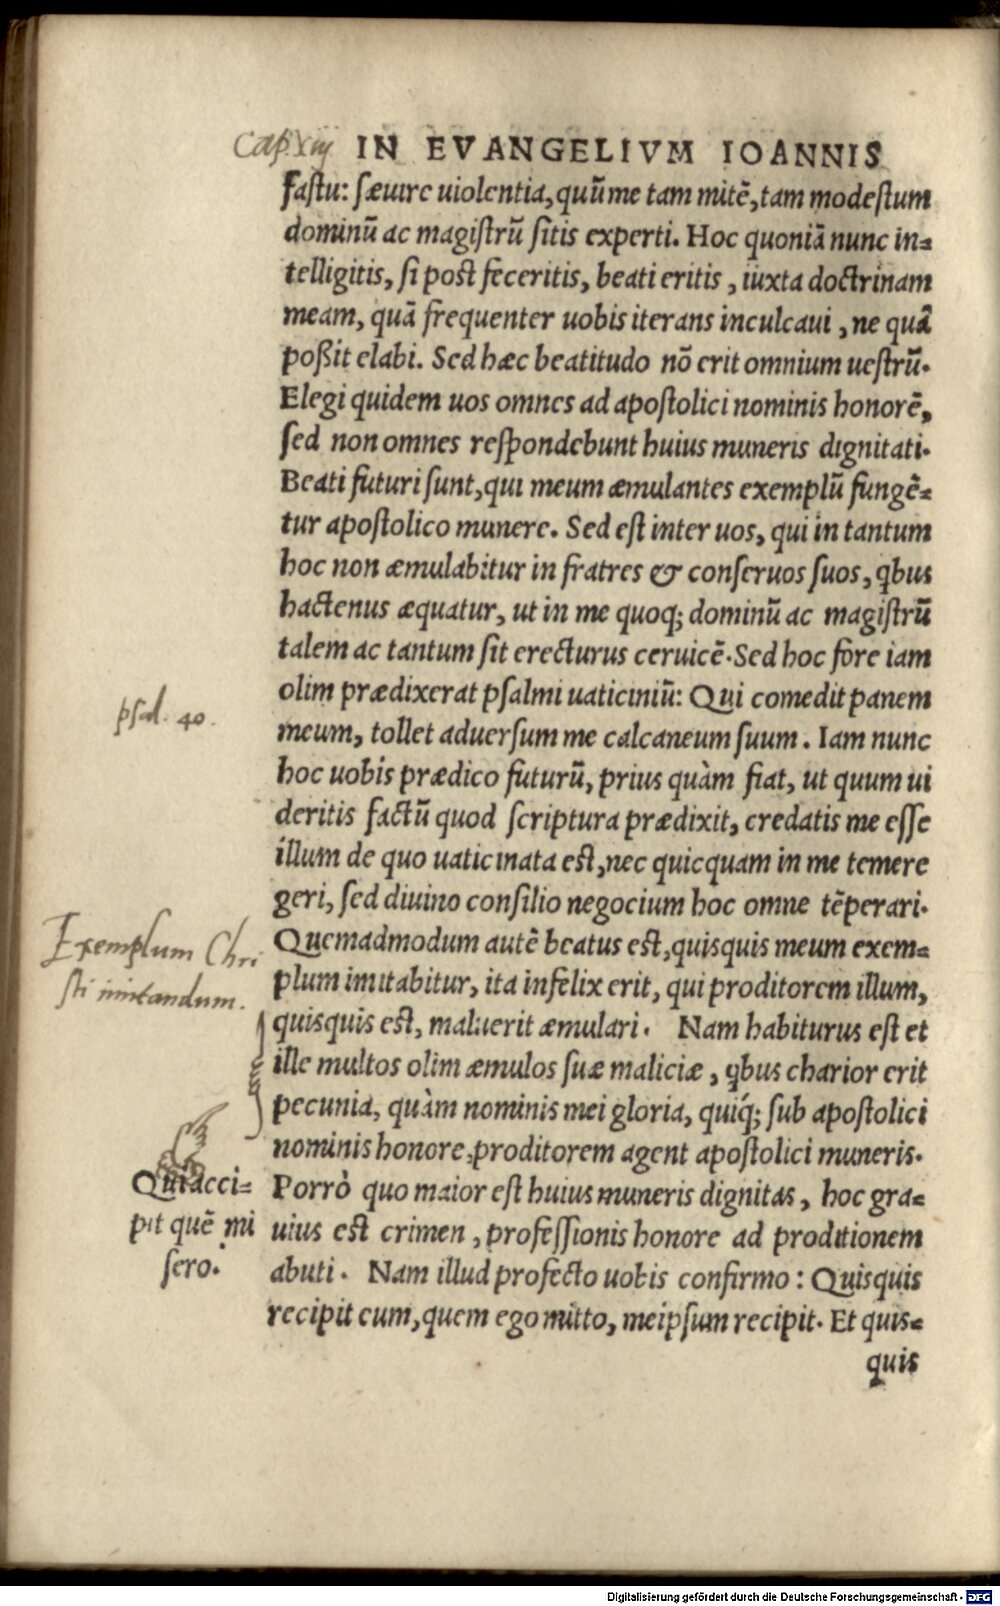 Cap. Xiij IN EVANGELIVM IOANNIS
fastu: sæuire uiolentia, quũ me tam mitẽ, tam modestum
dominũ ac magistrũ sitis experti. Hoc quoniã nunc in-
telligitis, si post feceritis, beati eritis, iuxta doctrinam
meam, quã frequenter uobis iterans inculcaui, ne quã
poßit elabi. Sed hæc beatitudo nõ erit omnium uestrũ.
Elegi quidem uos omnes ad apostolici nominis honorẽ,
sed non omnes respondebunt huius muneris dignitati.
Beati futuri sunt, qui meum æmulantes exemplũ fungẽ-
tur apostolico munere. Sed est inter uos, qui in tantum
hoc non æmulabitur in fratres & conseruos suos, qbus
hactenus æquatur, ut in me quoq; dominũ ac magistrũ
talem ac tantum sit erecturus ceruicẽ. Sed hoc fore iam
olim prædixerat psalmi uaticiniũ: Qui comedit panem
psal. 40.
meum, tollet aduersum me calcaneum suum. Iam nunc
hoc uobis prædico futurũ, prius quàm fiat, ut quum ui
deritis factũ quod scriptura prædixit, credatis me esse
illum de quo uaticinata est, nec quicquam in me temere
geri, sed diuino consilio negocium hoc omne tẽperari.
Quemadmodum autẽ beatus est, quisquis meum exem-
Exemplum Chri
sti imitandum.
plum imitabitur, ita infelix erit, qui proditorem illum,
quisquis est, maluerit æmulari. Nam habiturus est et
ille multos olim æmulos suæ maliciæ, qbus charior erit
pecunia, quàm nominis mei gloria, quiq́; sub apostolici
nominis honore, proditorem agent apostolici muneris.
Qui acci-
pit quẽ mi
sero.
Porrò quo maior est huius muneris dignitas, hoc gra-
uius est crimen, professionis honore ad proditionem
abuti. Nam illud profecto uobis confirmo: Quisquis
recipit eum, quem ego mitto, meipsum recipit. Et quis-
quis
Digitalisierung gefördert durch die Deutsche Forschungsgemeinschaft - DFG